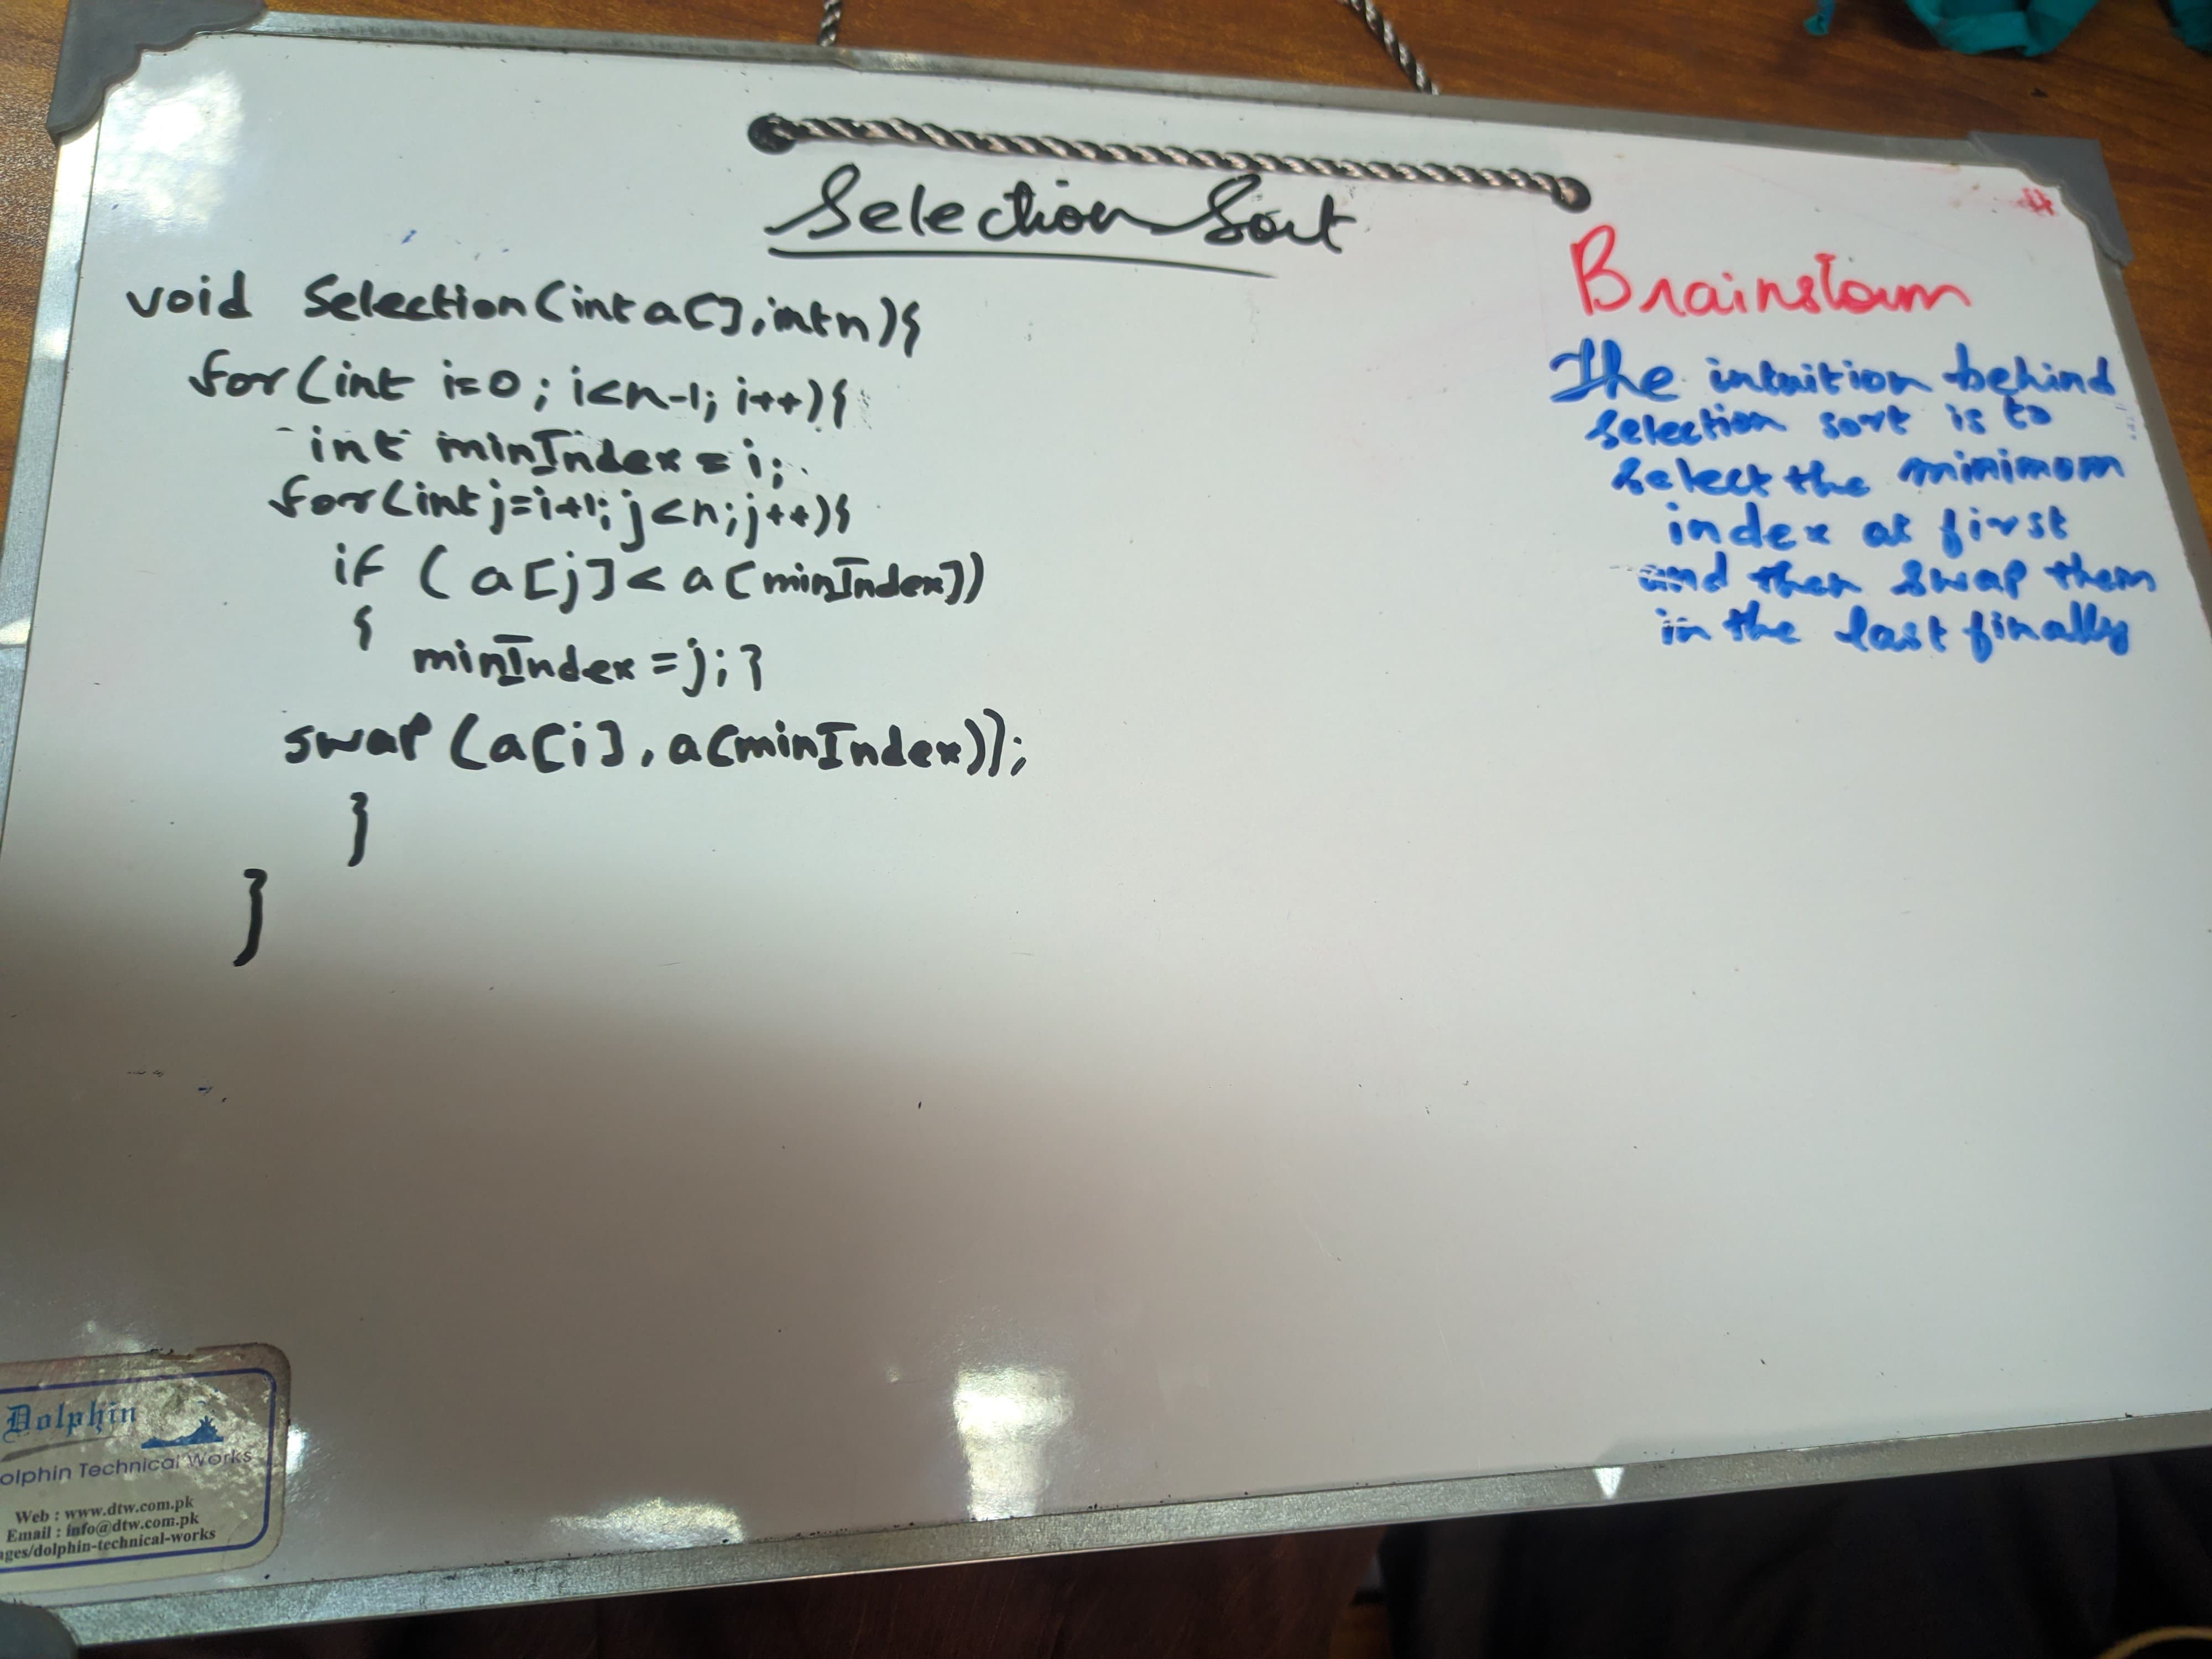 Selection Sort
void Selection(int a[], int n){
for(int i=0; i<n-1; i++){
int minIndex = i;
for(int j=i+1; j<n; j++){
if (a[j] < a[minIndex])
{
minIndex = j; }
swap (a[i], a[minIndex]);
}
}
Brainstorm
The intuition behind
selection sort is to
select the minimum
index as first
and then swap them
in the last finally
Dolphin
olphin Technical Works
Web : www.dtw.com.pk
Email : info@dtw.com.pk
ages/dolphin-technical-works